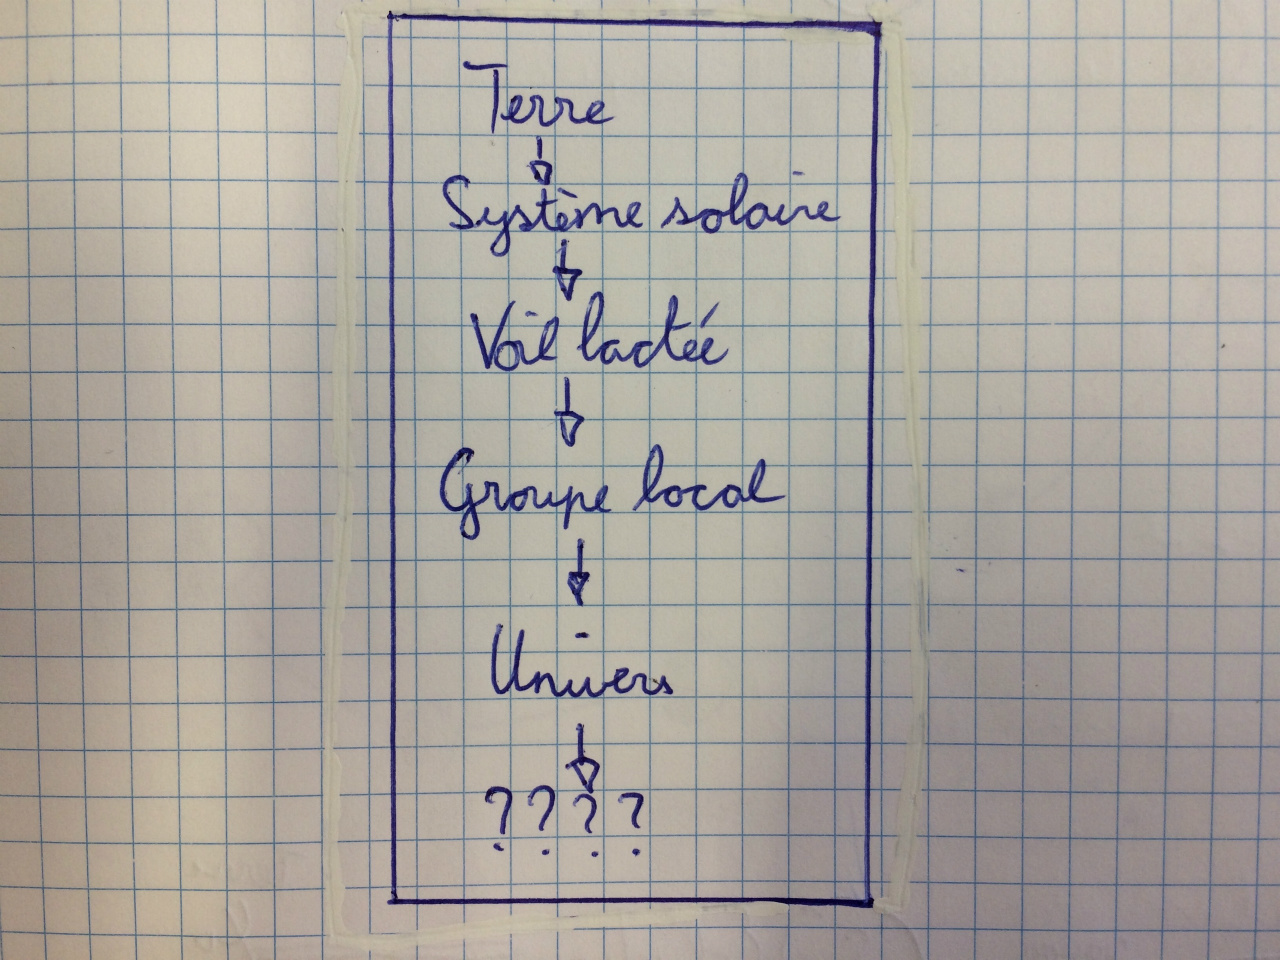 Terre
Système solaire
Voie lactée
Groupe local
Univers
????